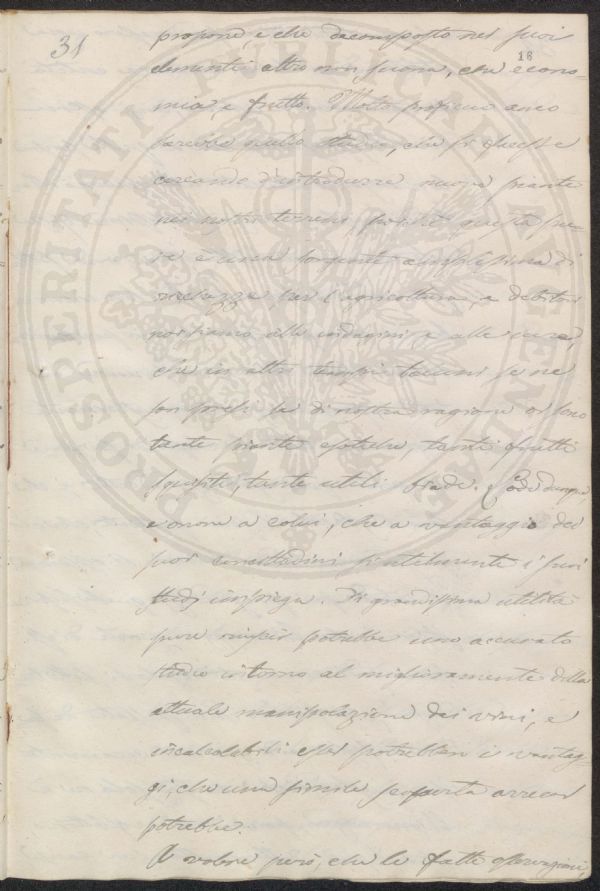 31
16
propone, e che decomposto nei suoi
elementi altro non suona, che econo-
mia, e frutto. Molto proficuo anco
sarebbe quello studio, che si facesse
cercando d'introdurre nuove piante
nei nostri terreni, poichè questa pu-
re è una sorgente amplissima di
ricchezza per l'agricoltura, e debitori
noi siamo alle indagini, e alle cure,
che in altri tempi taluni se ne
son presi se di nostra ragione or sono
tante piante esotiche, tanti frutti
squisiti, tante utili biade. Lode dunque,
e onore a colui, che a vantaggio dei
suoi concittadini sì utilmente i suoi
studj impiega. Di grandissima utilità
pure riuscir potrebbe uno accurato
studio intorno al miglioramento della
attuale manipolazione dei vini, e
incalcolabili esser potrebbero i vantag-
gi, che una simile scoperta arrecar
potrebbe.
A volere però, che le fatte osservazioni,
PROSPERITATI PUBLICAE AUGENDAE